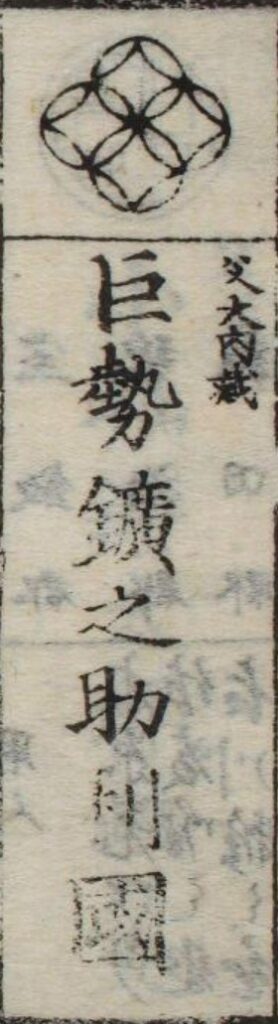 父大内蔵
巨勢鑛之助利國